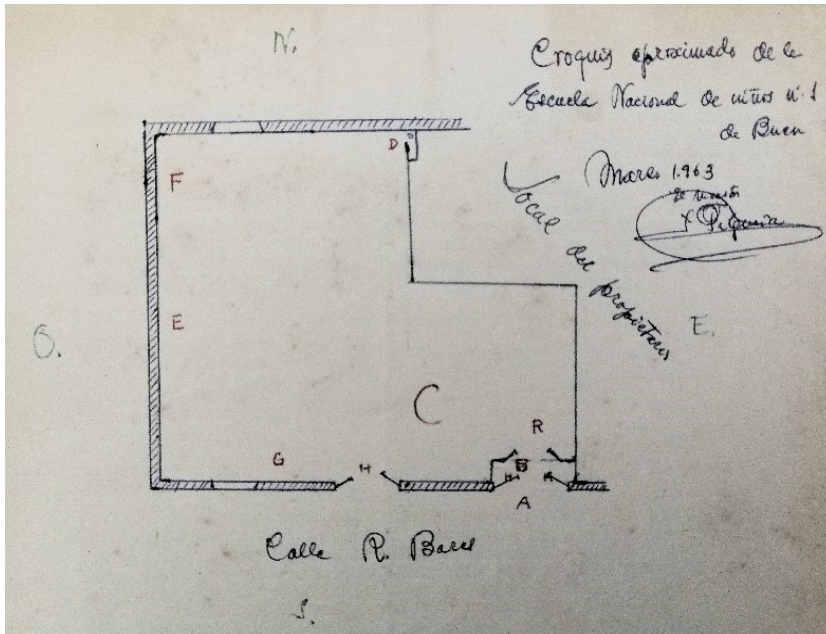 N.
Croquis aproximado de la
Escuela Nacional de niños nº 1
de Bueu
Marzo 1.963
Local del propietario
D
F
E
O.
E.
C
R
G
H
B
H
A
Calle R. Bares
S.